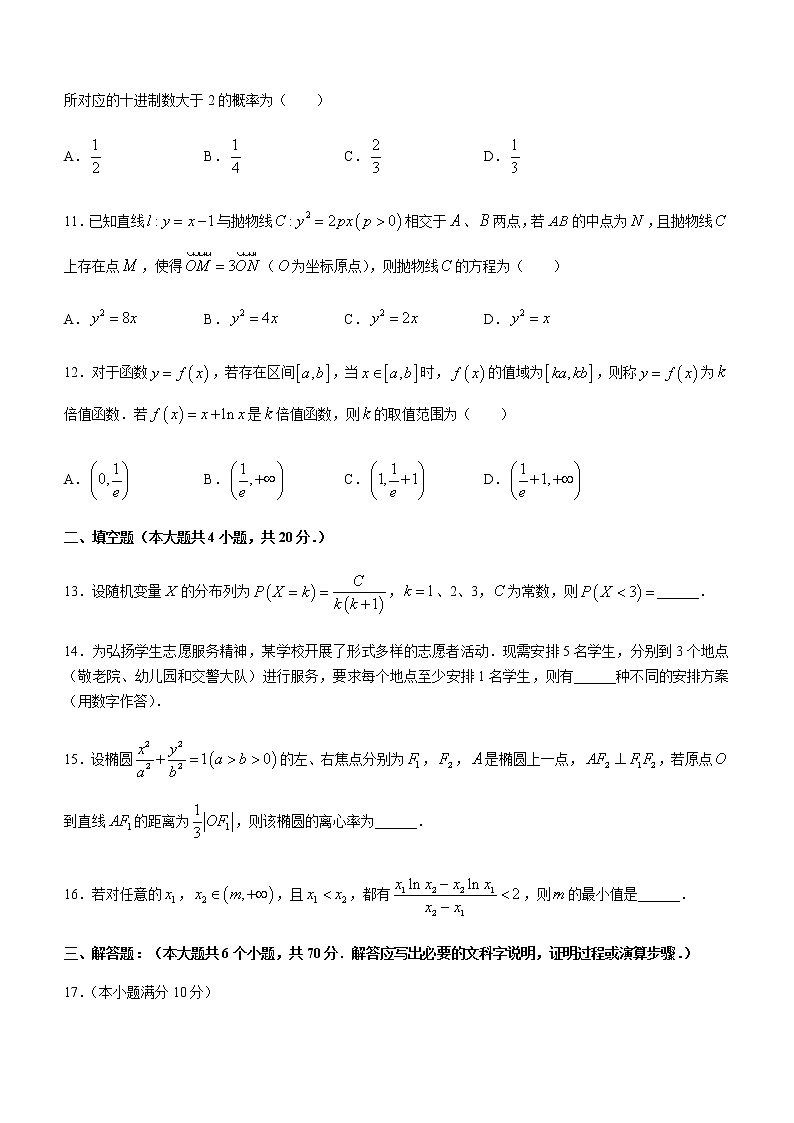 所对应的十进制数大于 2 的概率为（　　）
A. 1/2　B. 1/4　C. 2/3　D. 1/3
11.已知直线 l : y = x − 1 与抛物线 C : y² = 2px ( p > 0 ) 相交于 A、B 两点,若 AB 的中点为 N,且抛物线 C
上存在点 M,使得 OM = 3ON（O 为坐标原点),则抛物线 C 的方程为（　　）
A. y² = 8x　B. y² = 4x　C. y² = 2x　D. y² = x
12.对于函数 y = f ( x ),若存在区间 [ a , b ],当 x ∈ [ a , b ] 时, f ( x ) 的值域为 [ ka , kb ],则称 y = f ( x ) 为 k
倍值函数.若 f ( x ) = x + ln x 是 k 倍值函数,则 k 的取值范围为（　　）
A. (0, 1/e)　B. (1/e, +∞)　C. (1, 1/e + 1)　D. (1/e + 1, +∞)
二、填空题（本大题共 4 小题，共 20 分.）
13.设随机变量 X 的分布列为 P ( X = k ) = C/(k ( k + 1 )), k = 1、2、3, C 为常数,则 P ( X < 3 ) = ______.
14.为弘扬学生志愿服务精神，某学校开展了形式多样的志愿者活动.现需安排 5 名学生，分别到 3 个地点
（敬老院、幼儿园和交警大队）进行服务，要求每个地点至少安排 1 名学生，则有______种不同的安排方案
（用数字作答).
15.设椭圆 x²/a² + y²/b² = 1 ( a > b > 0 ) 的左、右焦点分别为 F₁, F₂, A 是椭圆上一点, AF₂ ⊥ F₁F₂,若原点 O
到直线 AF₁ 的距离为 1/3 |OF₁|,则该椭圆的离心率为______.
16.若对任意的 x₁, x₂ ∈ ( m , +∞ ),且 x₁ < x₂,都有 (x₁ ln x₂ − x₂ ln x₁)/(x₂ − x₁) < 2,则 m 的最小值是______.
三、解答题:（本大题共 6 个小题，共 70 分. 解答应写出必要的文科字说明，证明过程或演算步骤.）
17.（本小题满分 10 分）